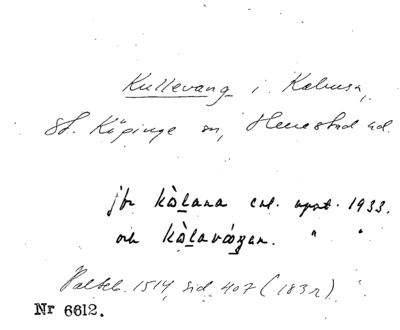 Kullevang i Kabusa,
St. Köpinge sn, Herrestad hd.
jfr kòlana enl. uppt. 1933.
och kòlavåŋan. " "
Palteb. 1514, sid. 407 (183r)
Nr 6612.